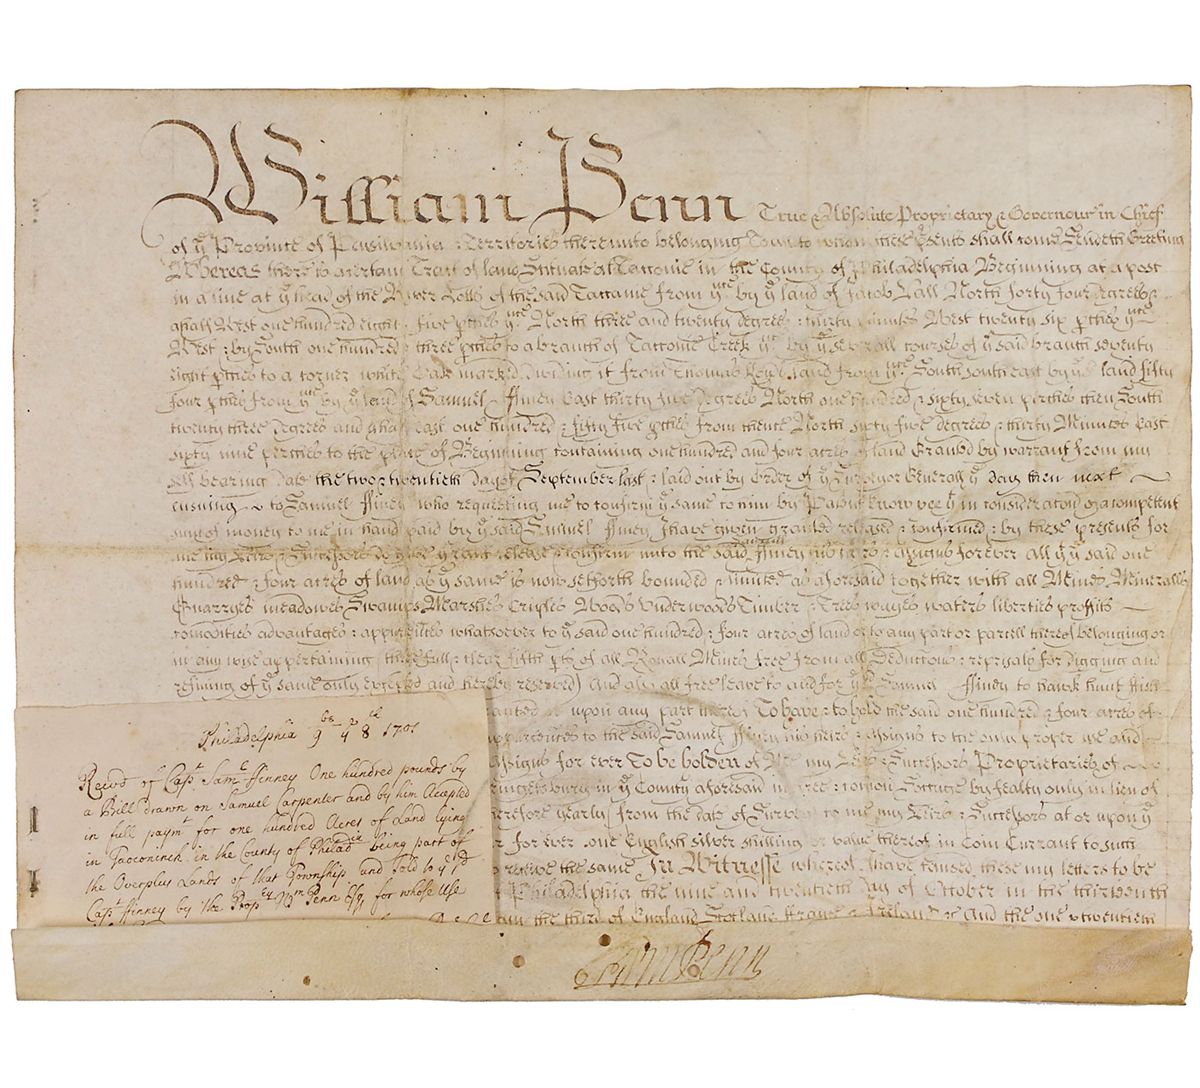 William Penn True & Absolute Proprietary & Governour in Chief
of yᵉ Province of Pensilvania & Territories thereunto belonging To all to whom these pˢents shall come Sendeth Greeting
Whereas there is a certain Tract of land Scituate at in the County of Philadelphia Beginning at a post
in a line at yᵉ head of the River of the said from yⁿᶜᵉ by yᵉ land of Jacob Hall North forty four degrees &
a half West one hundred eight & five pches yⁿᶜᵉ North three and twenty degrees & thirty minutes West twenty six pches yⁿᶜᵉ
West & by South one hundred & three pches to a branch of Creek yⁿ by yᵉ severall courses of yᵉ said branch seventy
eight pches to a corner white Oak marked dividing it from Thomas land from yⁿᶜᵉ South south east by yᵉ land fifty
four pches from yⁿᶜᵉ by yᵉ land of Samuel ffiney East thirty five degrees North one hundred & sixty seven perches then South
twenty three degrees and a half East one hundred & fifty five pches from thence North sixty five degrees & thirty Minutes East
sixty nine perches to the place of Beginning containing one hundred and four acres of land Graunted by warrant from my
self bearing date the two & twentieth day of September last & laid out by Order of yᵉ Surveyor Generall yᵉ day then next
ensuing to Samuel ffiney who requesting me to confirm yᵉ same to him by Patent Know yee yᵗ in consideracon of a competent
sum of money to me in hand paid by yᵉ said Samuel ffiney I have given granted released & confirmed & by these presents for
me my Heirs & Successors do give grant release & confirm unto the said ffiney his heirs & assigns forever all yᵗ yᵉ said one
hundred & four acres of land as yᵉ same is now setforth bounded & limited as aforesaid together with all Mines Mineralls
Quarrys meadowes Swamps Marshes Criples Woods Underwoods Timber & Trees wayes waters liberties profits
comodities advantages & appurtences whatsoever to yᵉ said one hundred & four acres of land or to any part or parcell thereof belonging or
in any wise appertaining (three full & clear fifth pts of all Royall Mines free from all Deductions & reprisals for digging and
refining of yᵉ same only excepted and hereby reserved) And also all free leave to and for yᵉ said Samuel ffiney to hawk hunt ffish
upon any part thereof To have & to hold the said one hundred & four acres of
appurtences to the said Samuel ffiney his heirs & assigns to the only proper use and
assigns for ever To be holden of Me my Heirs Successors Proprietaries of
in yᵉ County aforesaid in free & comon Soccage by fealty only in lieu of
therefore yearly from the date of Survey to me my Heirs & Successors at or upon yᵉ
for ever one English silver shilling or value thereof in Coin Currant to such
receive the same In Witnesse whereof I have caused these my letters to be
Philadelphia the nine and twentieth day of October in the thirteenth
the third of England Scotland France & Ireland &c And the one & twentieth
Philadelphia 9ᵇᵉʳ 8 1701
Receivd of Capᵗ Samˡ ffinney One hundred pounds by
a Bill drawn on Samuel Carpenter and by him Accepted
in full paymᵗ for one hundred Acres of Land lying
in Taoconinck in the County of Philadᵃ being part of
the Overplus Lands of that Township and Sold to yᵉ sᵈ
Capᵗ ffinney by the Propʳ Wᵐ Penn Esqʳ for whose Use
Wm Penn